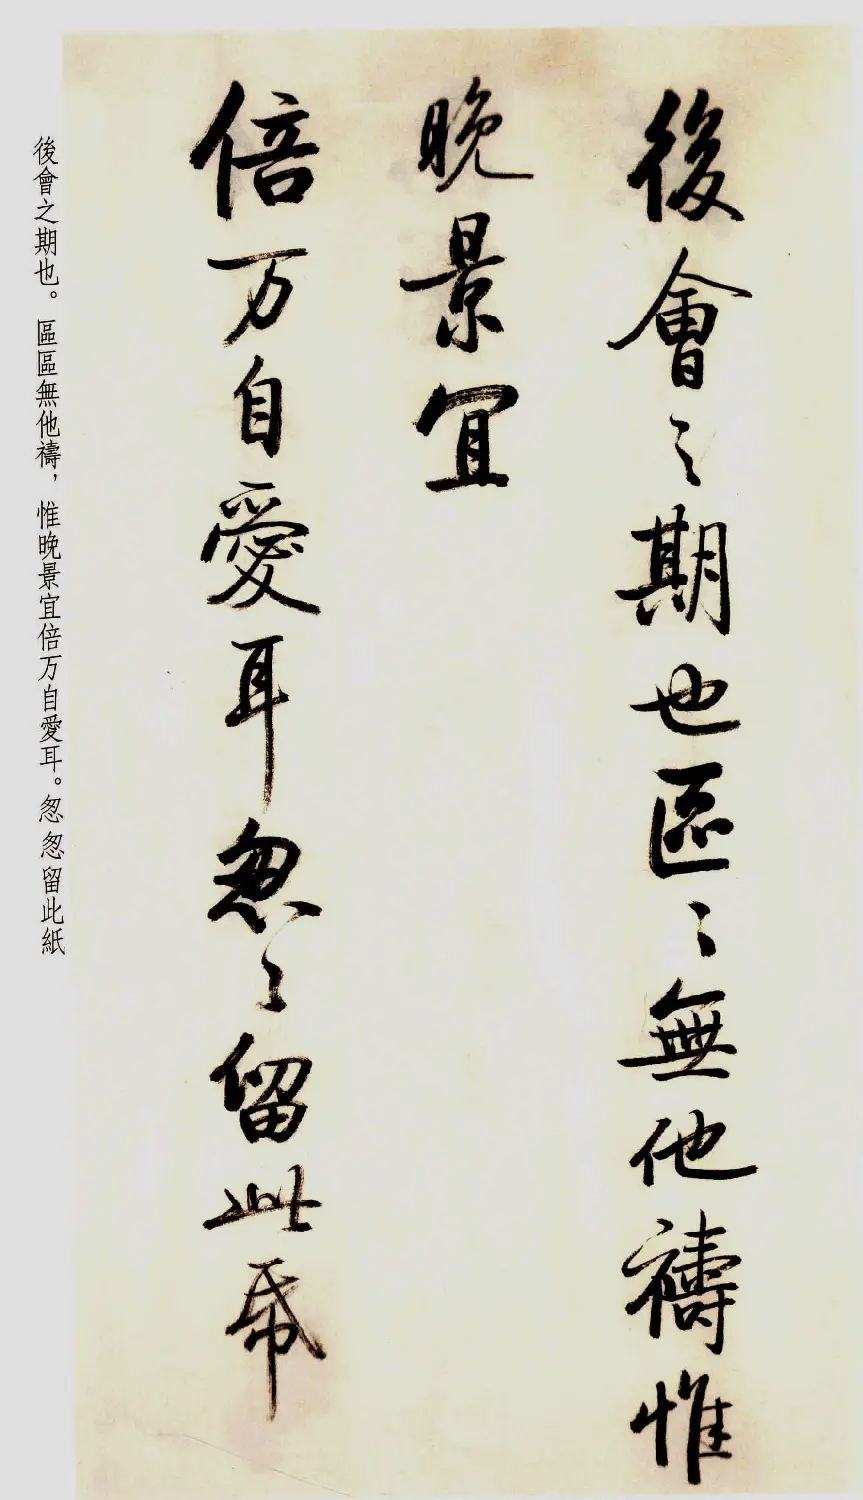 後會之期也區〻無他禱惟
晚景宜
倍万自愛耳怱〻留此帋
後會之期也。區區無他禱，惟晚景宜倍万自愛耳。怱怱留此紙